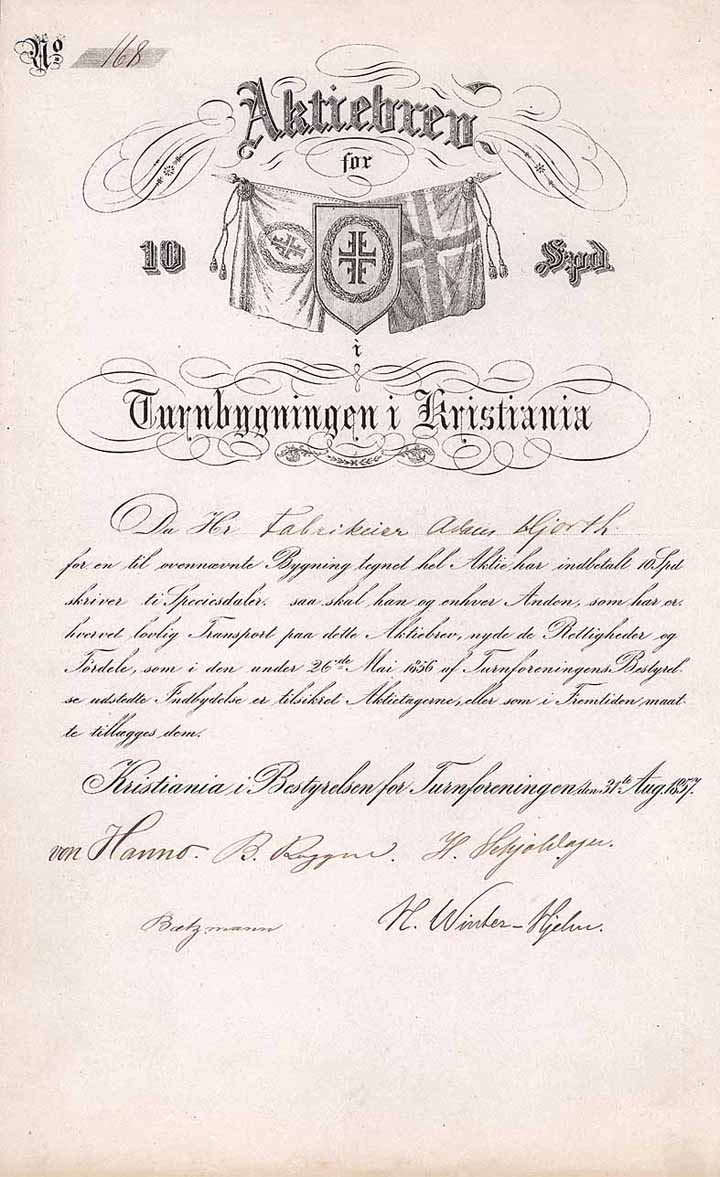 No 168
Aktiebrev
for
10 Spd
i
Turnbygningen i Kristiania
Da Hr Fabrikeier Adam Hjorth.
for en til ovennævnte Bygning tegnet hel Aktie har indbetalt 10 Spd
skriver ti Speciesdaler. saa skal han og enhver Anden, som har er-
hvervet lovlig Transport paa dette Aktiebrev, nyde de Rettigheder og
Fördele, som i den under 26de Mai 1856 af Turnforeningens Bestyrel-
se udstedte Indbydelse er tilsikret Aktietagerne, eller som i Fremtiden maat-
te tillægges dem.
Kristiania i Bestyrelsen for Turnforeningen, den 31te Aug. 1857.
von Hanno. B. H.
Bætzmann N. Winter-Hjelm.